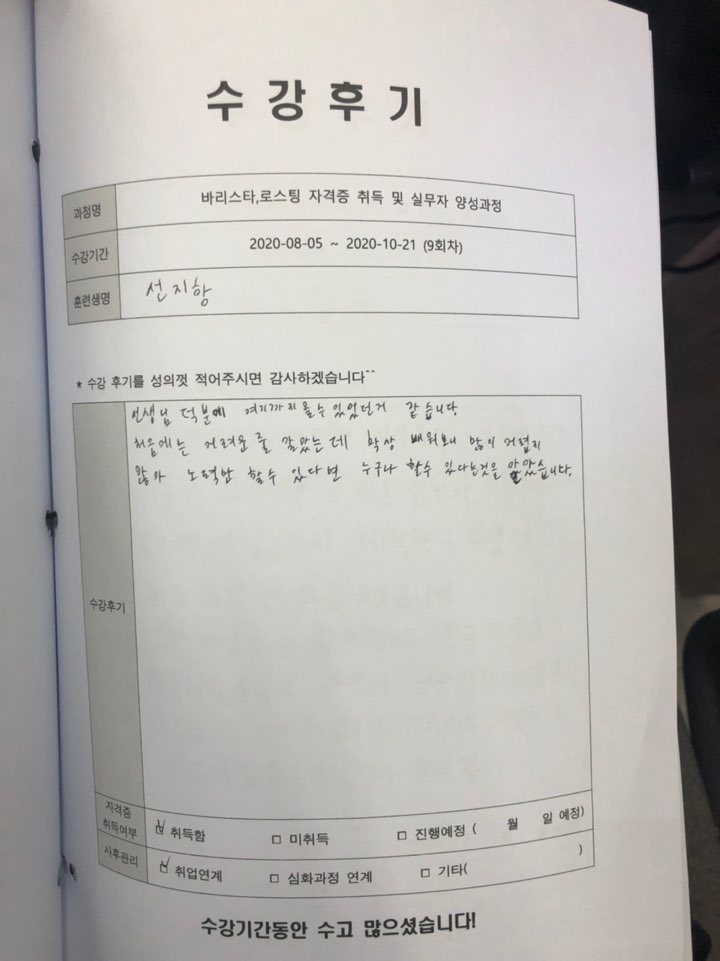 수강후기
과정명 바리스타,로스팅 자격증 취득 및 실무자 양성과정
수강기간 2020-08-05 ~ 2020-10-21 (9회차)
훈련생명 선지항
* 수강 후기를 성의껏 적어주시면 감사하겠습니다^^
선생님 덕분에 여기까지 올수 있었던거 같습니다
처음에는 어려운 줄 알았는데 막상 배워보니 많이 어렵지
않아 노력만 할수 있다면 누구나 할수 있다는것을 알았습니다.
수강후기
자격증
취득여부 ☑ 취득함 □ 미취득 □ 진행예정 ( 월 일 예정)
사후관리 ☑ 취업연계 □ 심화과정 연계 □ 기타( )
수강기간동안 수고 많으셨습니다!